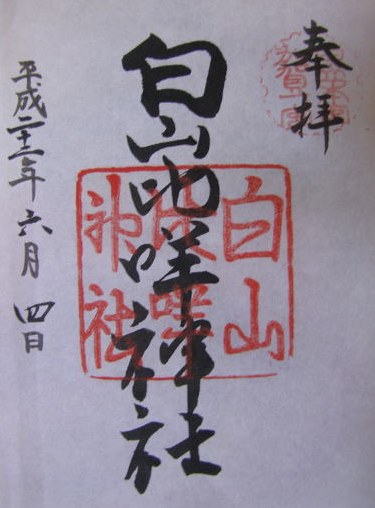 奉拝
白山比咩神社
白山
比咩
神社
平成二十一年六月四日